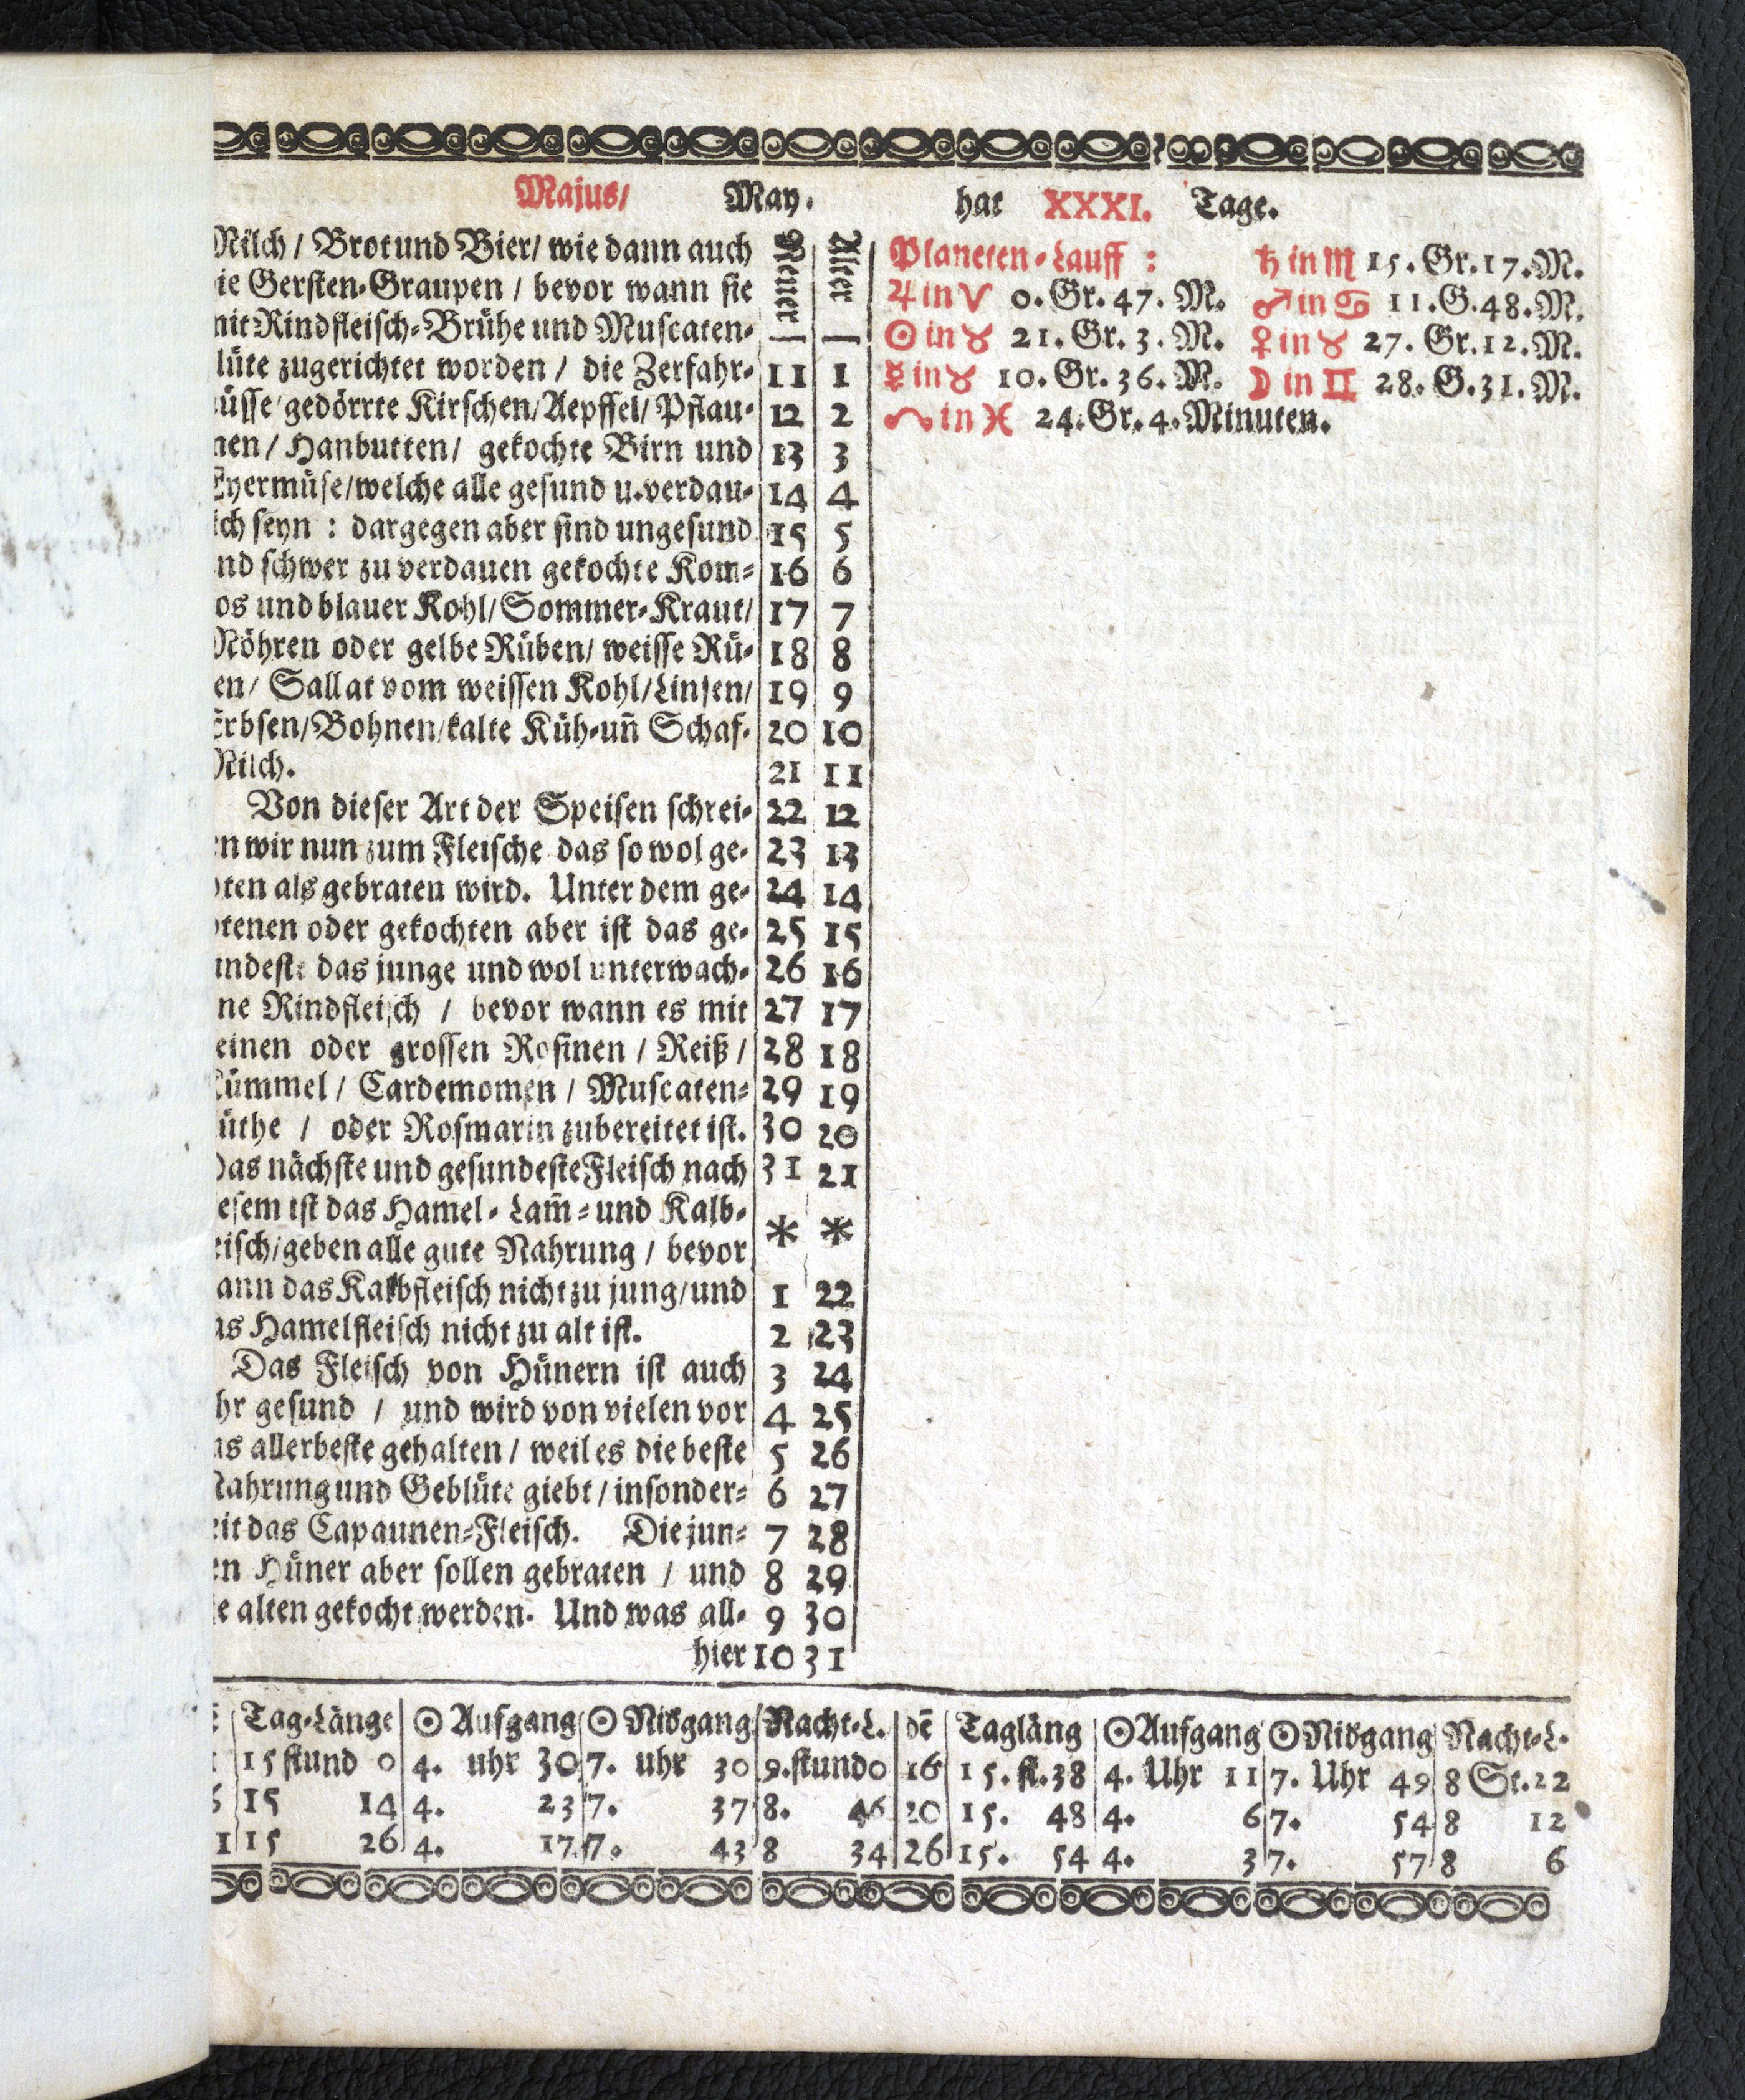 Majus/ May. hat XXXI. Tage.
Milch / Brot und Bier/ wie dann auch
die Gersten-Graupen / bevor wann sie
mit Rindfleisch-Brühe und Muscaten-
blüte zugerichtet worden / die Zerfahr-
nüsse/gedörrte Kirschen/Aepffel/ Pflau-
men/ Hanbutten/ gekochte Birn und
Eyermüse/welche alle gesund u.verdau-
lich seyn : dargegen aber sind ungesund
und schwer zu verdauen gekochte Kom-
pos und blauer Kohl/Sommer-Kraut/
Möhren oder gelbe Rüben/ weisse Rü-
ben/ Sallat vom weissen Kohl/Linsen/
Erbsen/Bohnen/kalte Küh-uñ Schaf-
Milch.
Von dieser Art der Speisen schrei-
ten wir nun zum Fleische das so wol ge-
sotten als gebraten wird. Unter dem ge-
sottenen oder gekochten aber ist das ge-
sundeste das junge und wol unterwach-
sene Rindfleisch / bevor wann es mit
kleinen oder grossen Rosinen / Reiß /
Kümmel / Cardemomen / Muscaten-
blüthe / oder Rosmarin zubereitet ist.
Das nächste und gesundeste Fleisch nach
diesem ist das Hamel- Lam̃- und Kalb-
fleisch/geben alle gute Nahrung / bevor
wann das Kalbfleisch nicht zu jung/und
das Hamelfleisch nicht zu alt ist.
Das Fleisch von Hünern ist auch
sehr gesund / und wird von vielen vor
das allerbeste gehalten / weil es die beste
Nahrung und Geblüte giebt / insonder-
heit das Capaunen-Fleisch. Die jun-
gen Hüner aber sollen gebraten / und
die alten gekocht werden. Und was all-
hier
Neuer Alter
11 1
12 2
13 3
14 4
15 5
16 6
17 7
18 8
19 9
20 10
21 11
22 12
23 13
24 14
25 15
26 16
27 17
28 18
29 19
30 20
31 21
* *
1 22
2 23
3 24
4 25
5 26
6 27
7 28
8 29
9 30
10 31
Planeten-Lauff : ♄ in ♏ 15. Gr. 17. M.
♃ in ♈ 0. Gr. 47. M. ♂ in ♋ 11. G. 48. M.
☉ in ♉ 21. Gr. 3. M. ♀ in ♉ 27. Gr. 12. M.
☿ in ♉ 10. Gr. 36. M. ☽ in ♊ 28. G. 31. M.
☊ in ♓ 24. Gr. 4. Minuten.
Tag-Länge ☉ Aufgang ☉ Nidgang Nacht-L. dē Tagläng ☉ Aufgang ☉ Nidgang Nacht-L.
1 15 stund 0 4. uhr 30 7. uhr 30 9. stund 0 16 15. st. 38 4. Uhr 11 7. Uhr 49 8 St. 22
6 15 14 4. 23 7. 37 8. 46 20 15. 48 4. 6 7. 54 8 12
11 15 26 4. 17 7. 43 8 34 26 15. 54 4. 3 7. 57 8 6